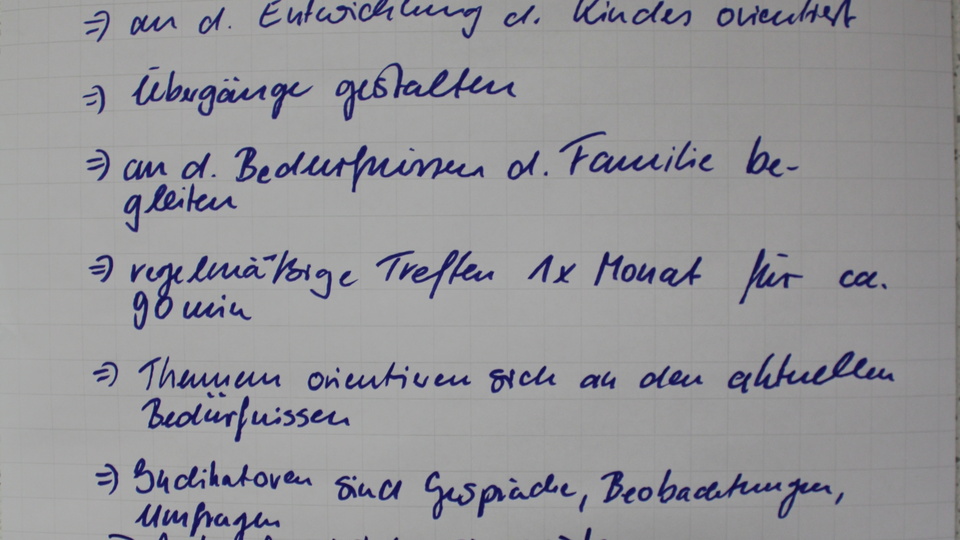 ⇒ an d. Entwicklung d. Kindes orientiert
⇒ Übergänge gestalten
⇒ an d. Bedürfnissen d. Familie be-
gleiten
⇒ regelmäßige Treffen 1x Monat für ca.
90 min
⇒ Themen orientieren sich an den aktuellen
Bedürfnissen
⇒ Indikatoren sind Gespräche, Beobachtungen,
Umfragen